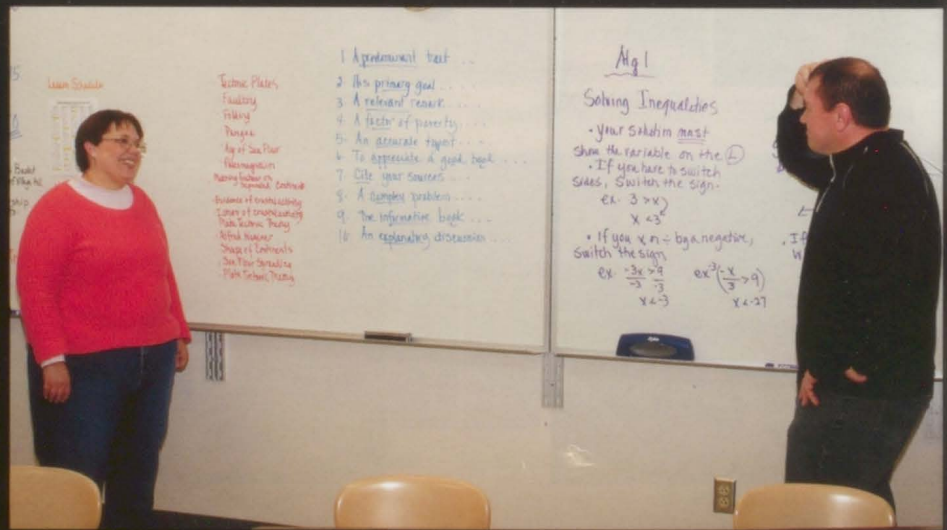 Lesson Schedule
Tectonic Plates
Faulting
Folding
Pangea
Age of Sea Floor
Paleomagnetism
Evidence of crustal activity
Zones of crustal activity
Plate Tectonic Theory
Alfred Wegener
Shape of Continents
Sea Floor Spreading
Plate Tectonic Theory
1 A predominant trait ...
2. His primary goal ....
3. A relevant remark ....
4. A factor of poverty ....
5. An accurate report ....
6. To appreciate a good book ....
7. Cite your sources ....
8. A complex problem ....
9. The informative book ...
10. An explanatory discussion ....
Alg 1
Solving Inequalities
• your solution must
show the variable on the L
• If you have to switch
sides, switch the sign.
ex. 3 > x
x < 3
• If you x or ÷ by a negative,
switch the sign
ex. -3x > 9
-3 -3
x < -3
ex -3(-x/3 > 9)
x < -27
• If